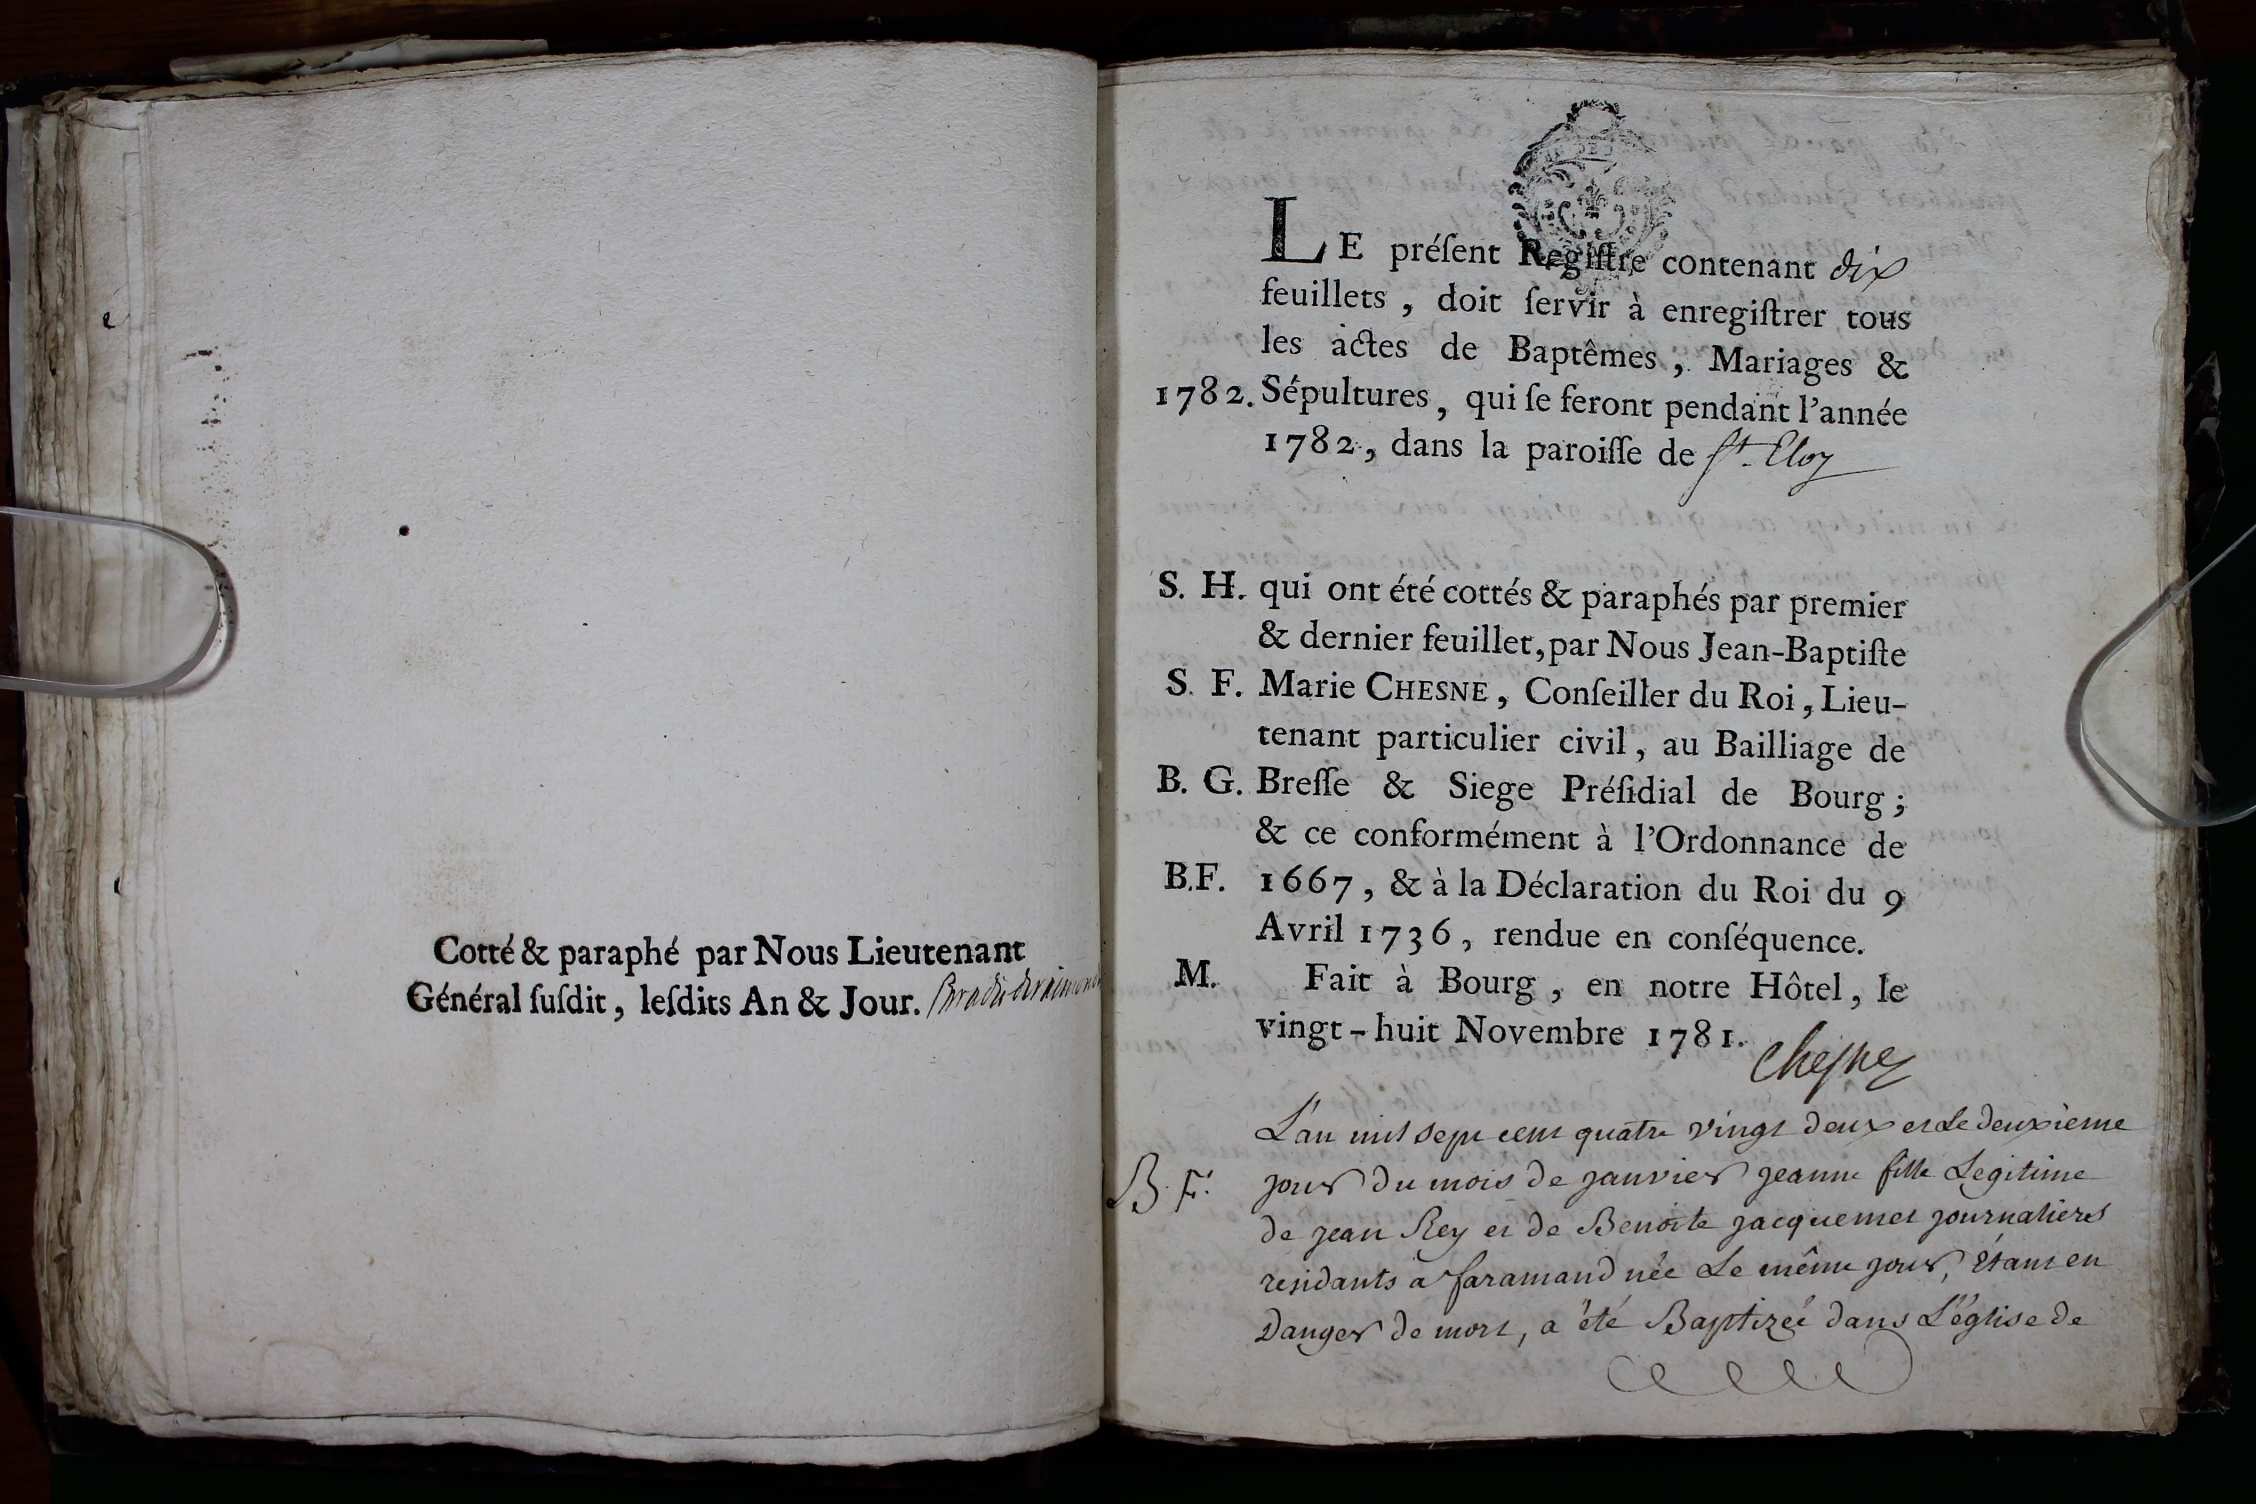 Cotté & paraphé par Nous Lieutenant
Général ſuſdit, leſdits An & Jour.
LE préſent Regiſtre contenant dix
feuillets, doit ſervir à enregiſtrer tous
les actes de Baptêmes, Mariages &
1782. Sépultures, qui ſe feront pendant l'année
1782, dans la paroiſſe de St. Eloy
S. H. qui ont été cottés & paraphés par premier
& dernier feuillet, par Nous Jean-Baptiſte
S. F. Marie CHESNE, Conſeiller du Roi, Lieu-
tenant particulier civil, au Bailliage de
B. G. Breſſe & Siege Préſidial de Bourg;
& ce conformément à l'Ordonnance de
B.F. 1667, & à la Déclaration du Roi du 9
Avril 1736, rendue en conſéquence.
M. Fait à Bourg, en notre Hôtel, le
vingt-huit Novembre 1781.
Chesne
L'an mil sept cent quatre vingt deux et Le deuxieme
B. F. jour du mois de janvier jeanne fille Legitime
de jean Rey et de Benoite jacquemet journaliers
residants a faramand née Le même jour, étant en
Danger de mort, a été Baptizeé dans L'église de